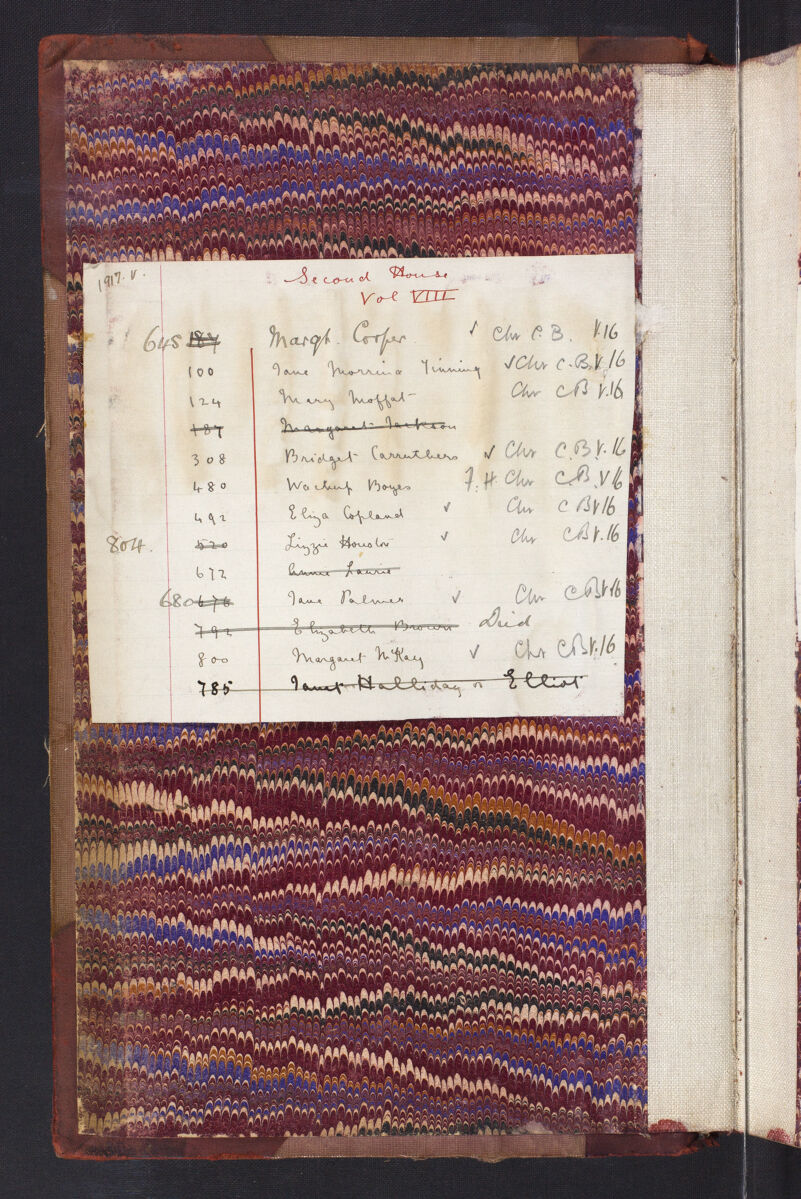 1917. V.
Second House
Vol VIII
645 187 Margt. Cooper ✓ Chr C.B. V.16
100 Jane Morrina Tinning ✓ Chr C.B. V.16
124 Mary Moffat Chr CB V.16
187 Margaret Jackson
308 Bridget Carruthers ✓ Chr C.B V.16
480 Wachup Boyes F.H. Chr C.B. V16
492 Eliza Copland ✓ Chr CB V16
804. 520 Lizzie Houston ✓ Chr CB V.16
672 Annie Laurie
680 676 Jane Palmer ✓ Chr CB V16
792 Elizabeth Brown Died
800 Margaret McKay ✓ Chr CB V.16
785 Janet Halliday or Elliot